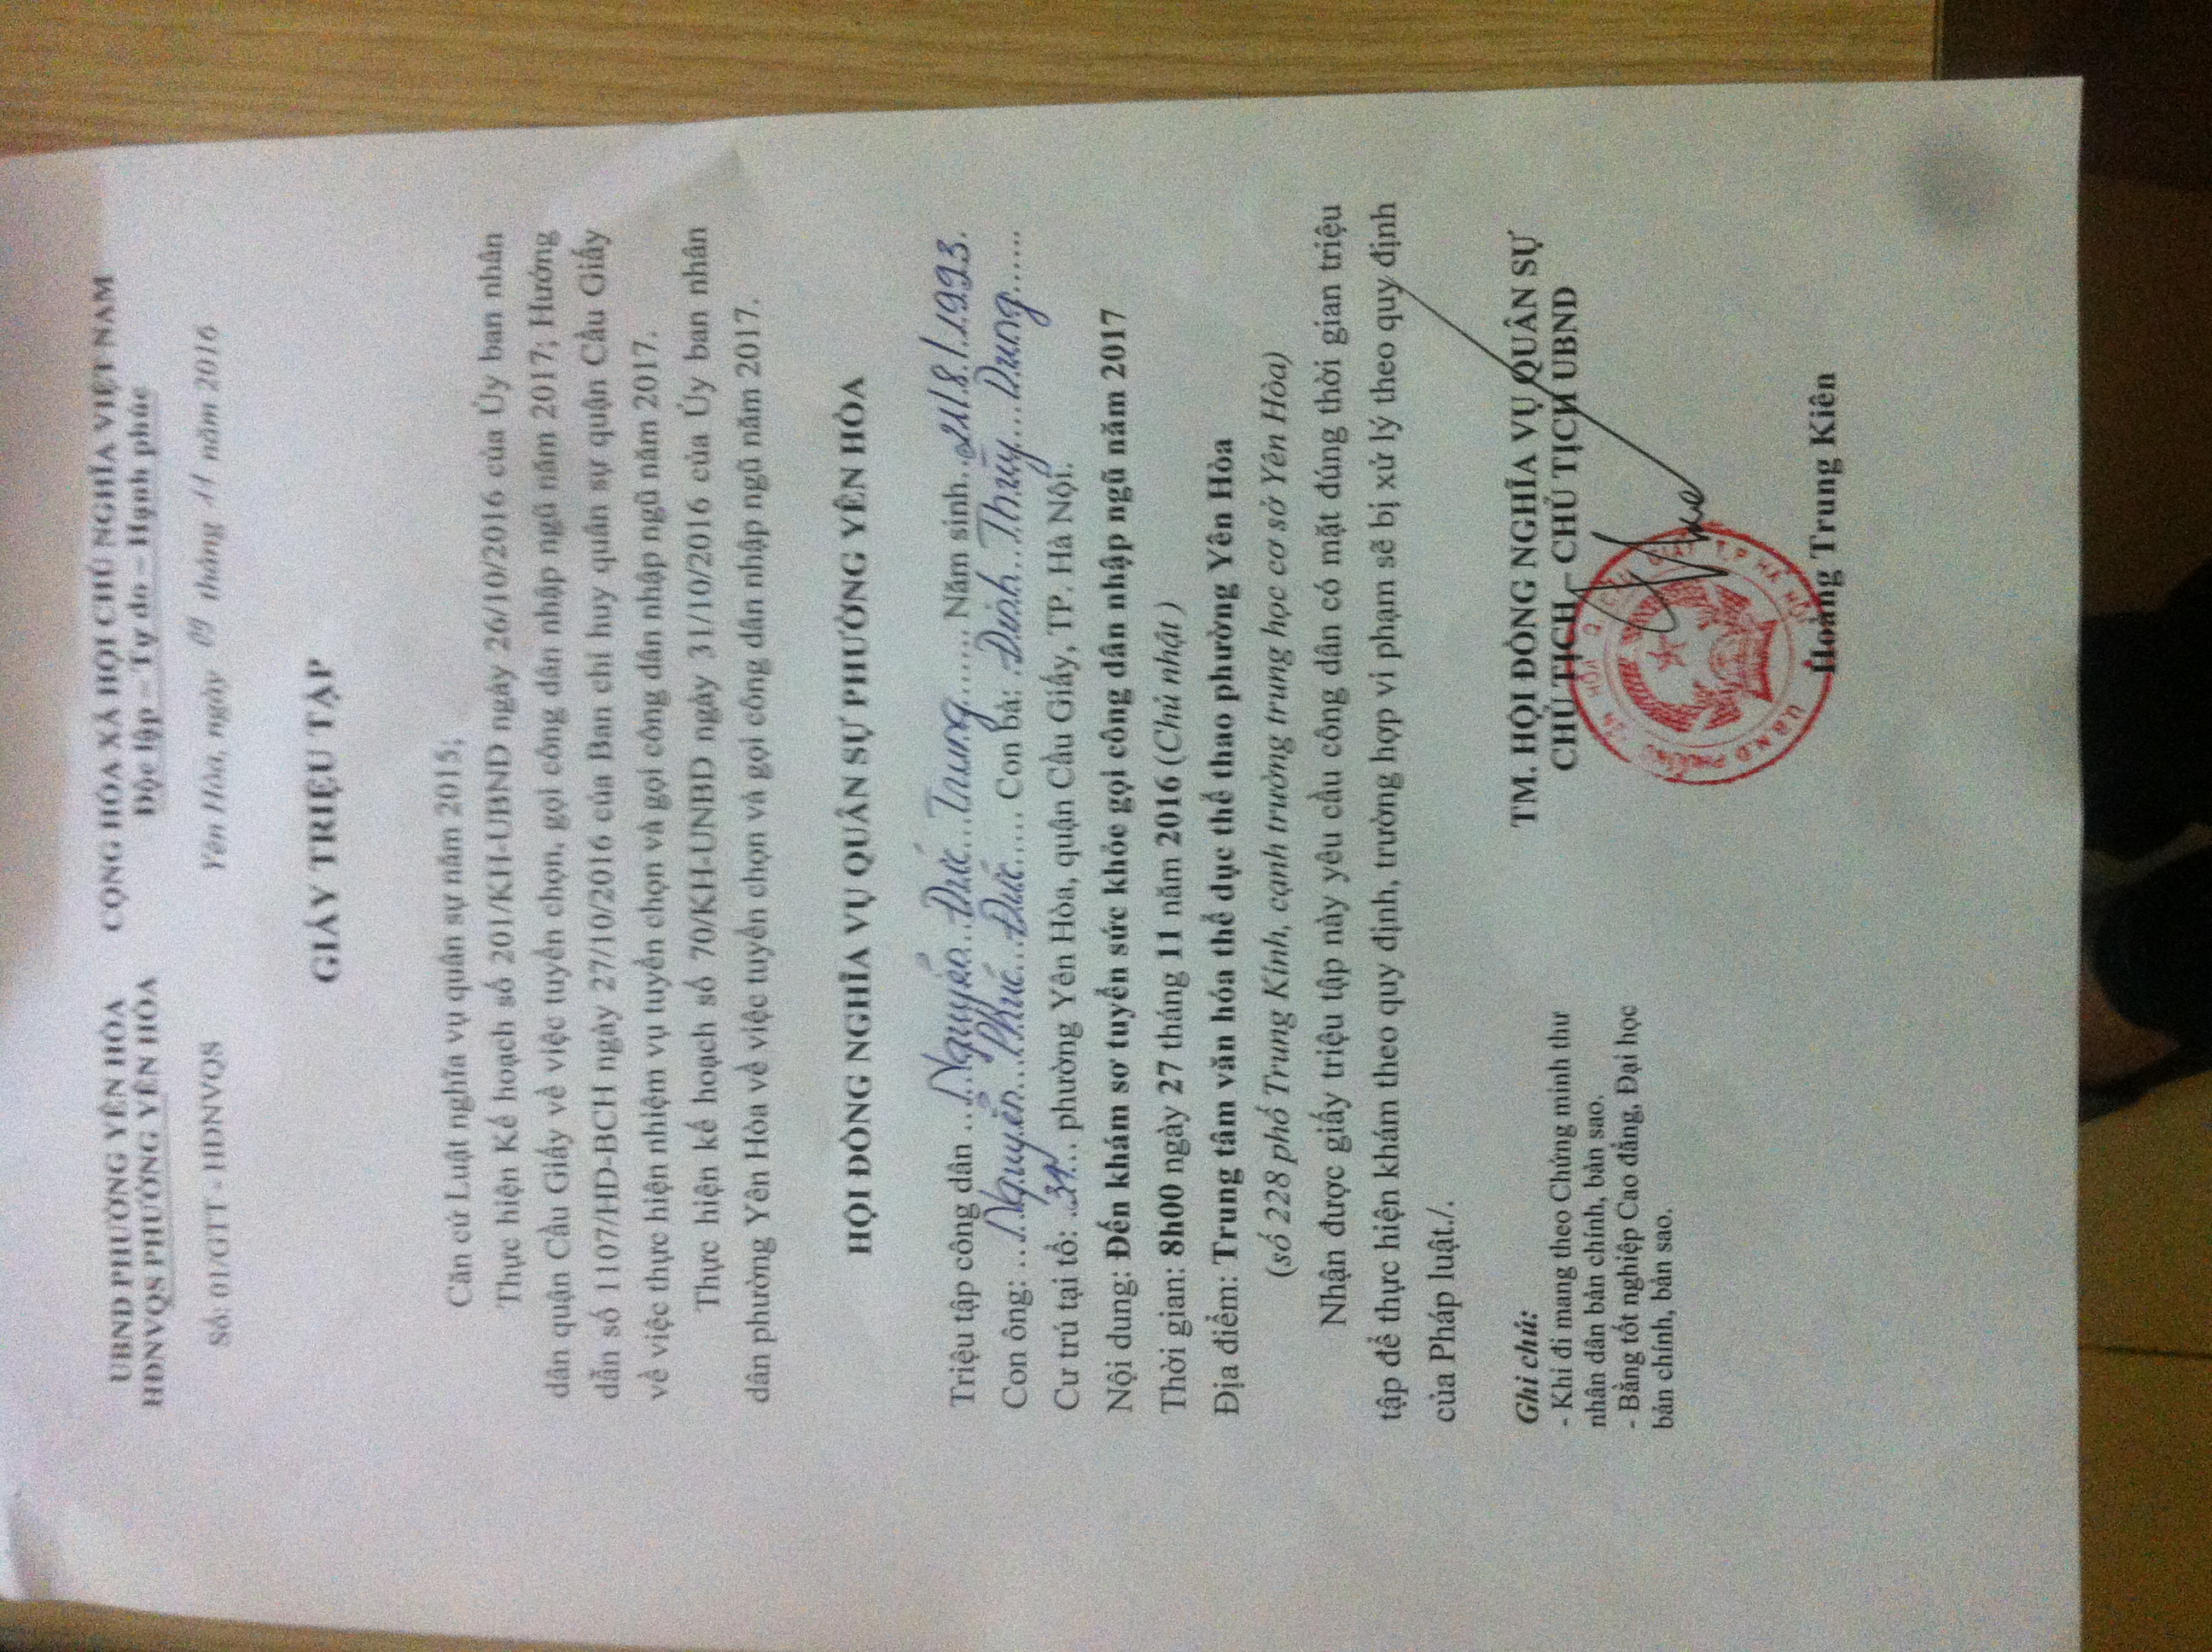 UBND PHƯỜNG YÊN HÒA
HĐNVQS PHƯỜNG YÊN HÒA
CỘNG HÒA XÃ HỘI CHỦ NGHĨA VIỆT NAM
Độc lập – Tự do – Hạnh phúc
Số: 01/GTT - HĐNVQS
Yên Hòa, ngày 09 tháng 11 năm 2016
GIẤY TRIỆU TẬP
Căn cứ Luật nghĩa vụ quân sự năm 2015;
Thực hiện Kế hoạch số 201/KH-UBND ngày 26/10/2016 của Ủy ban nhân
dân quận Cầu Giấy về việc tuyển chọn, gọi công dân nhập ngũ năm 2017; Hướng
dẫn số 1107/HD-BCH ngày 27/10/2016 của Ban chỉ huy quân sự quận Cầu Giấy
về việc thực hiện nhiệm vụ tuyển chọn và gọi công dân nhập ngũ năm 2017.
Thực hiện kế hoạch số 70/KH-UNBD ngày 31/10/2016 của Ủy ban nhân
dân phường Yên Hòa về việc tuyển chọn và gọi công dân nhập ngũ năm 2017.
HỘI ĐỒNG NGHĨA VỤ QUÂN SỰ PHƯỜNG YÊN HÒA
Triệu tập công dân ...Nguyễn Đức Trung....... Năm sinh...21/8/1993.
Con ông: ...Nguyễn Phúc Đức..... Con bà: Đinh Thùy Dung......
Cư trú tại tổ: ..31... phường Yên Hòa, quận Cầu Giấy, TP. Hà Nội.
Nội dung: Đến khám sơ tuyển sức khỏe gọi công dân nhập ngũ năm 2017
Thời gian: 8h00 ngày 27 tháng 11 năm 2016 (Chủ nhật )
Địa điểm: Trung tâm văn hóa thể dục thể thao phường Yên Hòa
(số 228 phố Trung Kính, cạnh trường trung học cơ sở Yên Hòa)
Nhận được giấy triệu tập này yêu cầu công dân có mặt đúng thời gian triệu
tập để thực hiện khám theo quy định, trường hợp vi phạm sẽ bị xử lý theo quy định
của Pháp luật./.
Ghi chú:
- Khi đi mang theo Chứng minh thư
nhân dân bản chính, bản sao.
- Bằng tốt nghiệp Cao đẳng, Đại học
bản chính, bản sao.
TM. HỘI ĐỒNG NGHĨA VỤ QUÂN SỰ
CHỦ TỊCH – CHỦ TỊCH UBND
Hoàng Trung Kiên